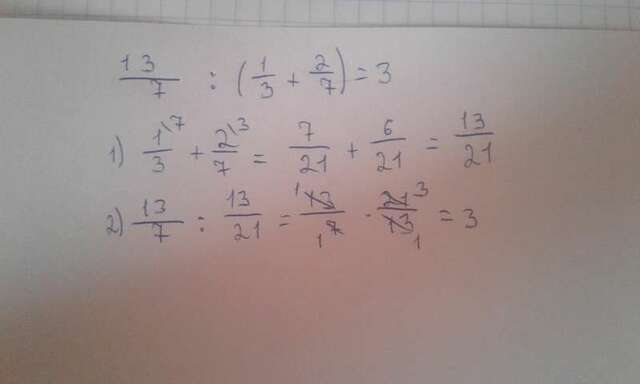 13/7 : (1/3 + 2/7) = 3
1) 1\7/3 + 2\3/7 = 7/21 + 6/21 = 13/21
2) 13/7 : 13/21 = 1 13/1 7 · 21 3/13 1 = 3